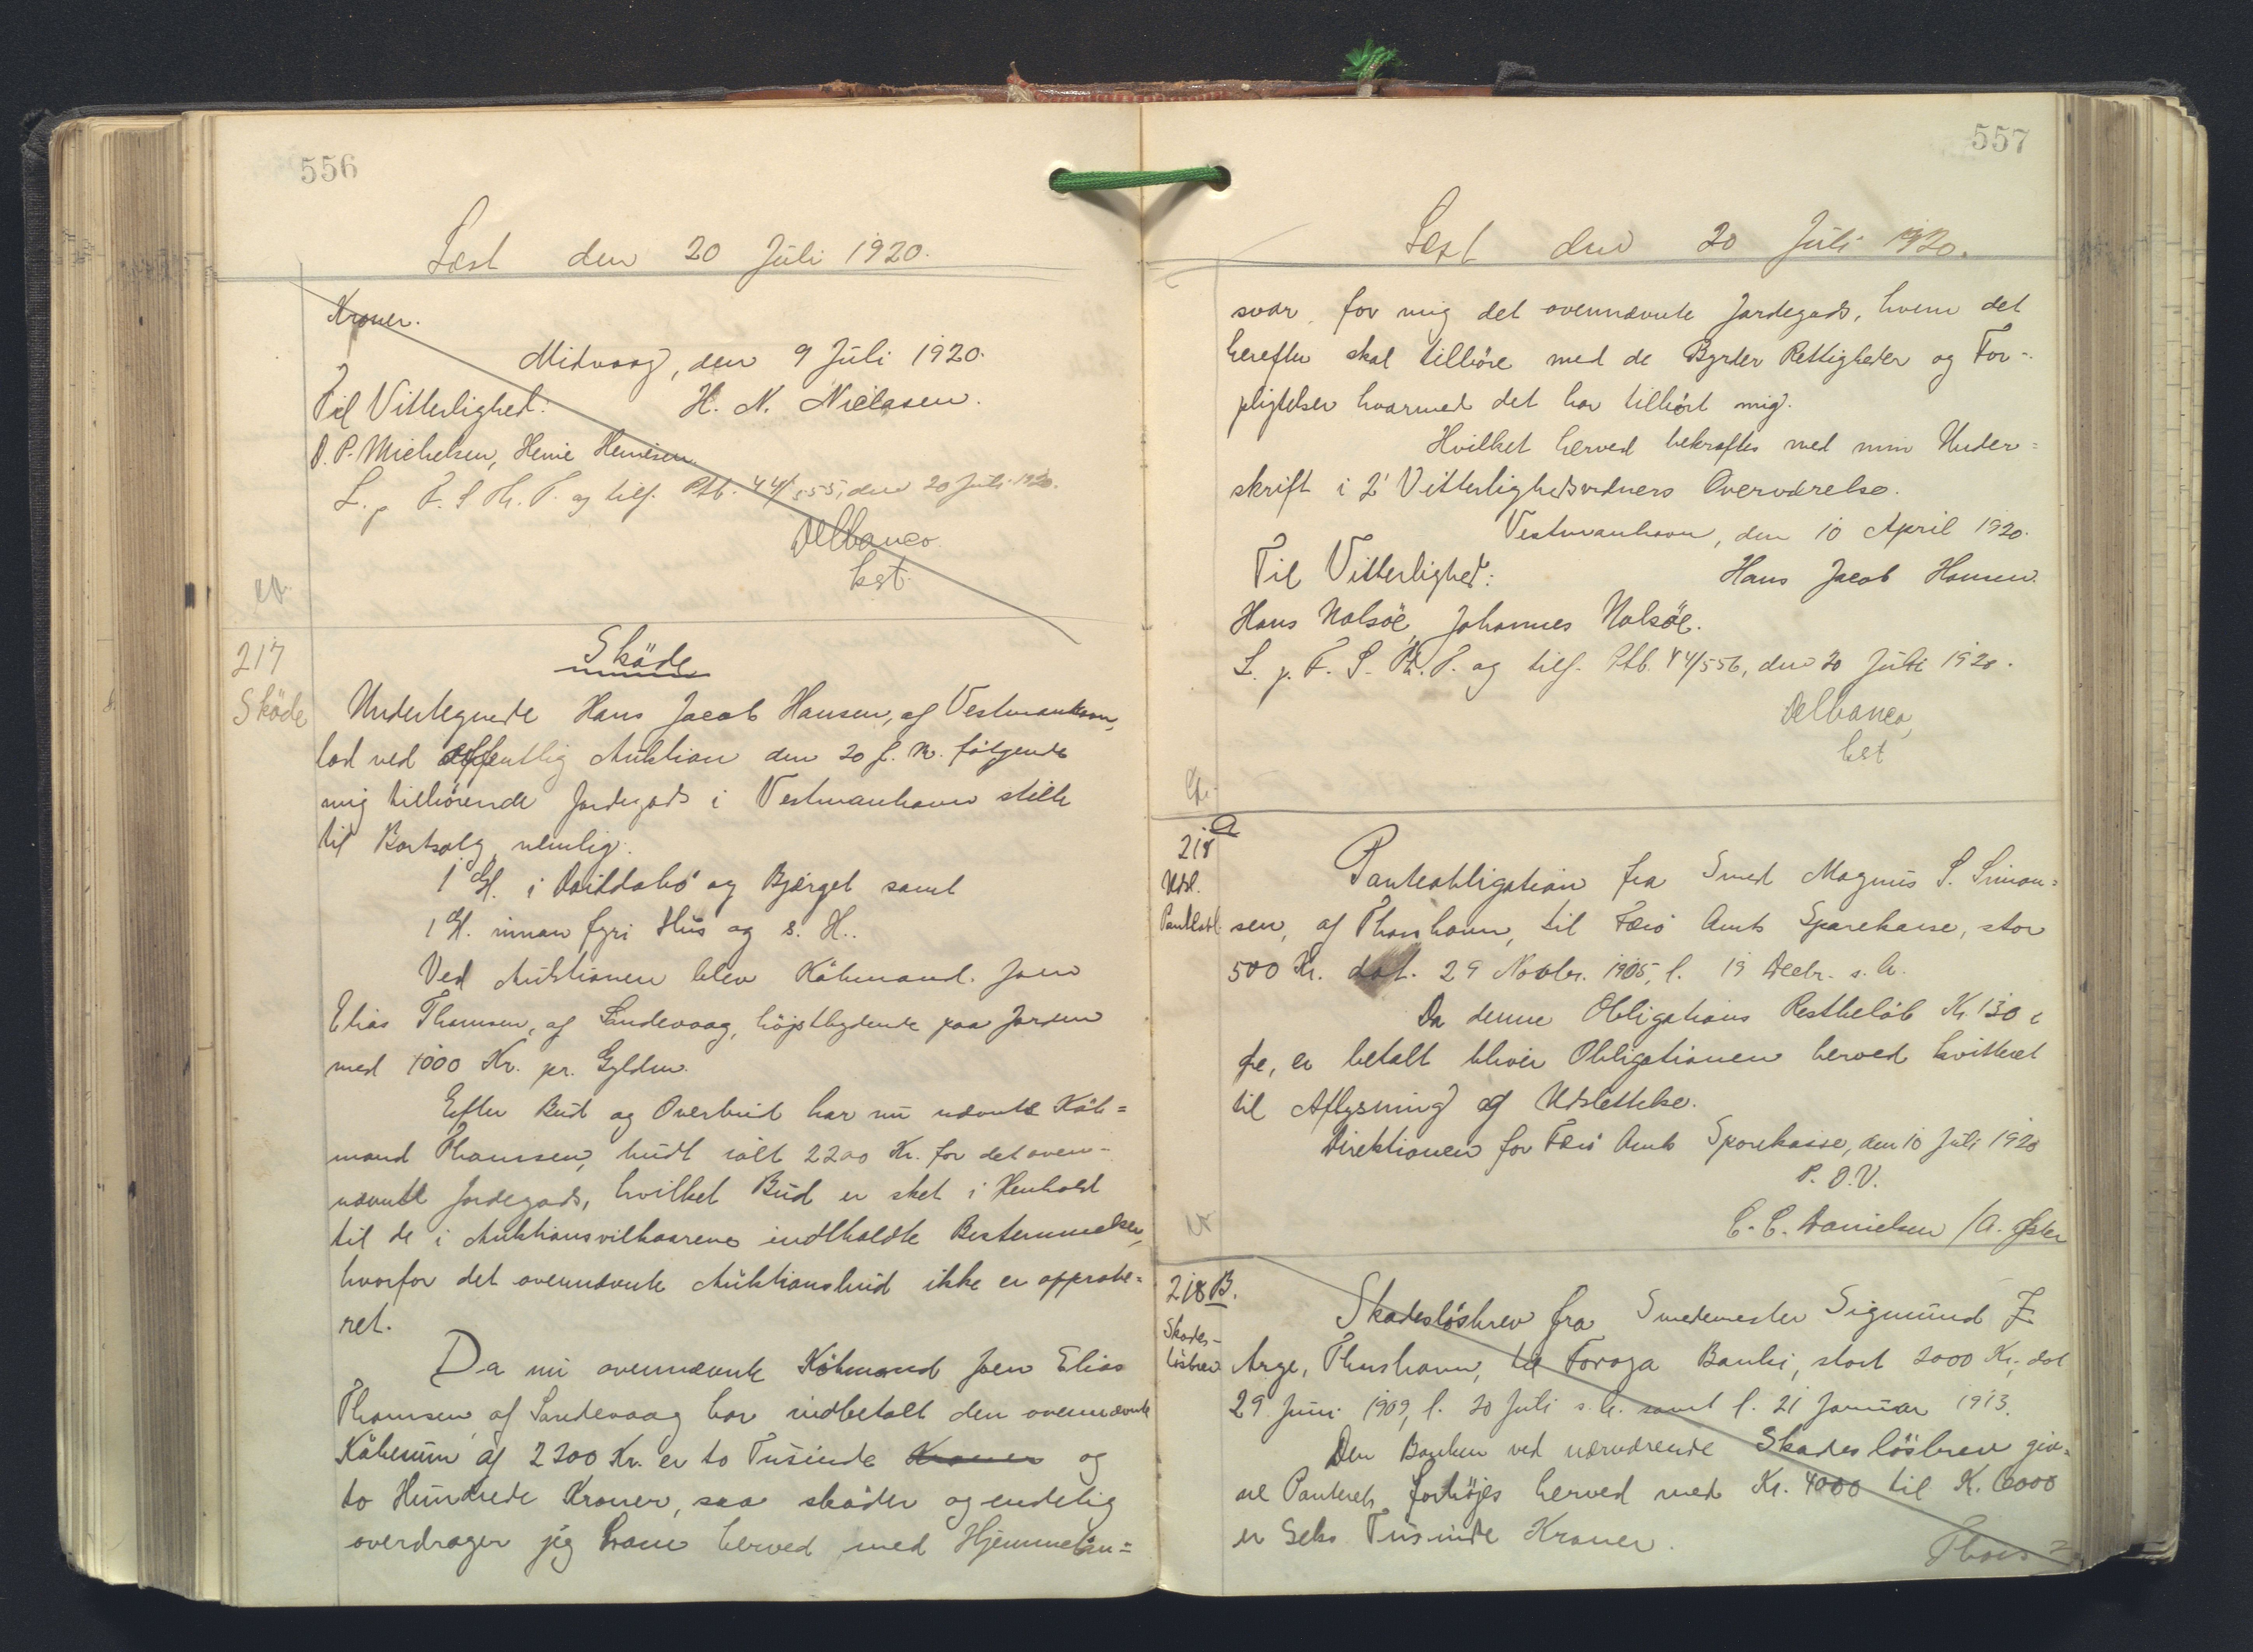 556
Læst den 20 Juli 1920.
Kroner.
Midvaag, den 9 Juli 1920.
Til Vitterlighed: H. N. Nielasen.
D. P. Michelsen, Heine Heinesen.
L. p. F. S. Th. P. og tilf. Ptb. 44/555, den 20 Juli 1920.
Delbanco.
kst.
217
Sköde
Sköde
Undertegnede Hans Jacob Hansen, af Vestmanhavn,
lod ved offentlig Auktion den 20 f. M. følgende
mig tilhørende Jordegods i Vestmanhavn stille
til Bortsalg nemlig:
1 Gl. i og Bjerget samt
1 Gl. innan fyri Hus og s. H..
Ved Auktionen blev Köbmand Joen
Elias Thomsen, af Sandevaag, höjstbydende paa Jorden
med 1000 Kr. pr. Gylden.
Efter Bud og Overbud har nu nævnte Köb=
mand Thomsen, budt ialt 2200 Kr. for det oven-
nævnte Jordegods, hvilket Bud er sket i Henhold
til de i Auktionsvilkaarene indholdte Bestemmelser,
hvorfor det ovennævnte Auktionsbud ikke er approbe=
ret.
Da nu ovennævnte Köbmand Joen Elias
Thomsen, af Sandevaag har indbetalt den ovennævnte
Köbesum af 2200 Kr. er to Tusinde Kroner og
to Hundrede Kroner, saa sköder og endelig
overdrager jeg ham herved med Hjemmelsan=
557
Læst den 20 Juli 1920.
svar for mig det ovennævnte Jordegods, hvem det
herefter skal tilhöre med de Byrder Rettigheder og For-
pligtelser hvormed det har tilhört mig.
Hvilket herved bekræftes med min Under=
skrift i 2 Vitterlighedsvidners Overværelse.
Vestmanhavn, den 10 April 1920.
Til Vitterlighed: Hans Jacob Hansen.
Hans Nolsöe, Johannes Nolsöe.
L. p. F. S. Th. P. og tilf. Ptb. 44/556, den 20 Juli 1920.
Delbanco,
kst
218 a
Udsl.
Panteobl.
Panteobligation fra Smed Magnus S. Simon=
sen, af Thorshavn, til Færö Amts Sparekasse, stor
500 Kr. dat. 29 Novbr. 1905, l. 19 Decbr. s. A.
Da denne Obligations Restbelöb Kr. 130 er betalt bliver Obligationen herved kvitteret
til Aflysning og Udslettelse.
Direktionen for Færö Amts Sparekasse, den 10 Juli 1920
P. D. V.
C. C. Danielsen / A.
218 B.
Skades-
lösbrev
Skadeslösbrev fra Smedemester Sigmund
Arge, Thorshavn, til Foroya Banki, stort 2000 Kr., dat
29 Juni 1909, l. 20 Juli s. A. samt l. 21 Januar 1913.
Den Banken ved nærværende Skadeslösbrev giv=
ne Panteret forhöjes herved med Kr. 4000 til K. 6000
er Seks Tusinde Kroner.
Thors=